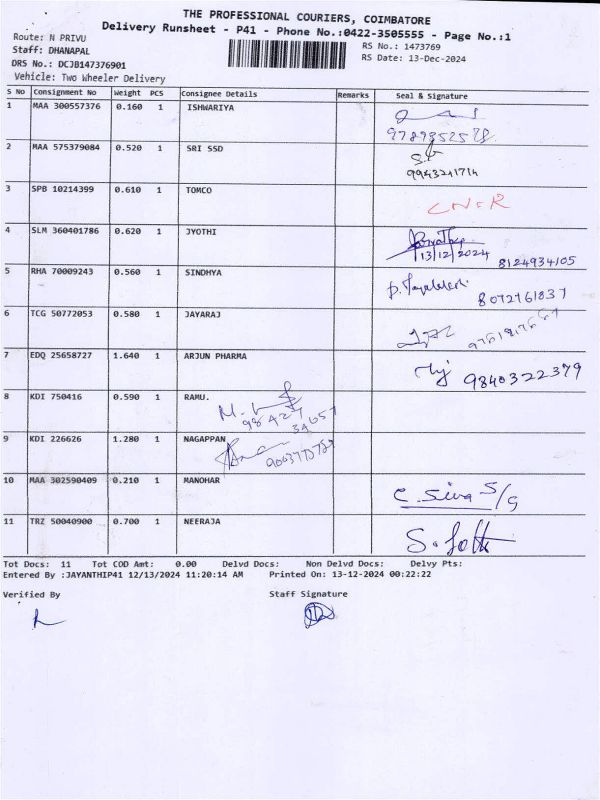 THE PROFESSIONAL COURIERS, COIMBATORE
Delivery Runsheet - P41 - Phone No.:0422-3505555 - Page No.:1
Route: N PRIVU
Staff: DHANAPAL
RS No.: 1473769
DRS No.: DCJB147376901
RS Date: 13-Dec-2024
Vehicle: Two Wheeler Delivery
S No Consignment No Weight PCS Consignee Details Remarks Seal & Signature
1 MAA 300557376 0.160 1 ISHWARIYA
2 MAA 575379084 0.520 1 SRI SSD
3 SPB 10214399 0.610 1 TOMCO
4 SLM 360401786 0.620 1 JYOTHI 13/12/2024 8124934105
5 RHA 70009243 0.560 1 SINDHYA 8072761837
6 TCG 50772053 0.580 1 JAYARAJ
7 EDQ 25658727 1.640 1 ARJUN PHARMA 9840322379
8 KDI 750416 0.590 1 RAMU. 98427 34657
9 KDI 226626 1.280 1 NAGAPPAN
10 MAA 302590409 0.210 1 MANOHAR C. Siva S/G
11 TRZ 50040900 0.700 1 NEERAJA
Tot Docs: 11 Tot COD Amt: 0.00 Delvd Docs: Non Delvd Docs: Delvy Pts:
Entered By :JAYANTHIP41 12/13/2024 11:20:14 AM Printed On: 13-12-2024 00:22:22
Verified By Staff Signature